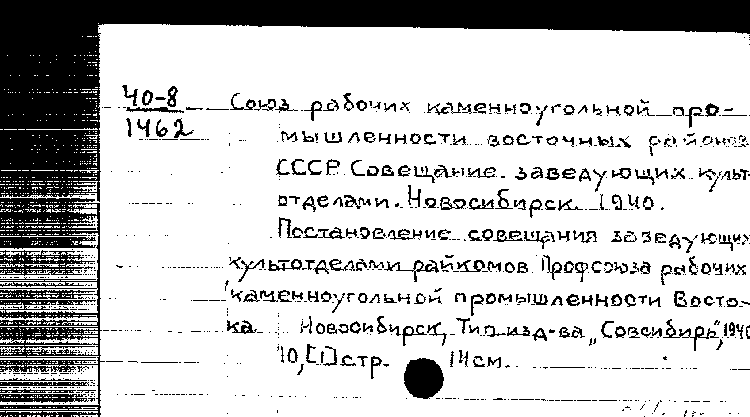 40-8 Союз рабочих каменноугольной про-
1462 мышленности восточных районов
СССР. Совещание заведующих культ-
отделами. Новосибирск. 1940.
Постановление совещания заведующих
культотделами райкомов Профсоюза рабочих
каменноугольной промышленности Восто-
ка. Новосибирск, Тип. изд-ва „Совсибирь", 1940
10, [1] стр. 14 см.